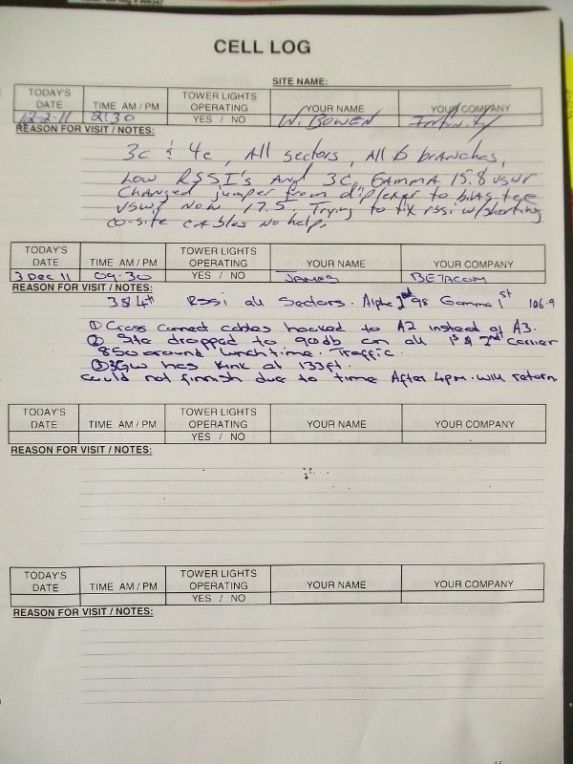 CELL LOG
SITE NAME:
TODAY'S DATE TIME AM / PM TOWER LIGHTS OPERATING YOUR NAME YOUR COMPANY
12-2-11 2:30 YES / NO W. BOWEN Infinity
REASON FOR VISIT / NOTES:
3c & 4c, All sectors, All 6 branches,
Low RSSI's And 3C, GAMMA 15.8 VSWR
Changed jumper from diplexer to bias-tee
VSWR Now 17.5, Trying to fix rssi w/shorting
co-site cables no help.
TODAY'S DATE TIME AM / PM TOWER LIGHTS OPERATING YOUR NAME YOUR COMPANY
3 DEC 11 09.30 YES / NO JAMES BETACOM
REASON FOR VISIT / NOTES:
3 & 4th RSSI all Sectors. Alpha 98 Gamma 1st 106.9
① Cross connect cables hooked to A2 instead of A3.
② Site dropped to 90db on all 1st & 2nd carrier
850 around lunch time. Traffic.
③ has Kink at 133ft.
could not finnish due to time After 4pm. will return
TODAY'S DATE TIME AM / PM TOWER LIGHTS OPERATING YOUR NAME YOUR COMPANY
YES / NO
REASON FOR VISIT / NOTES:
TODAY'S DATE TIME AM / PM TOWER LIGHTS OPERATING YOUR NAME YOUR COMPANY
YES / NO
REASON FOR VISIT / NOTES: